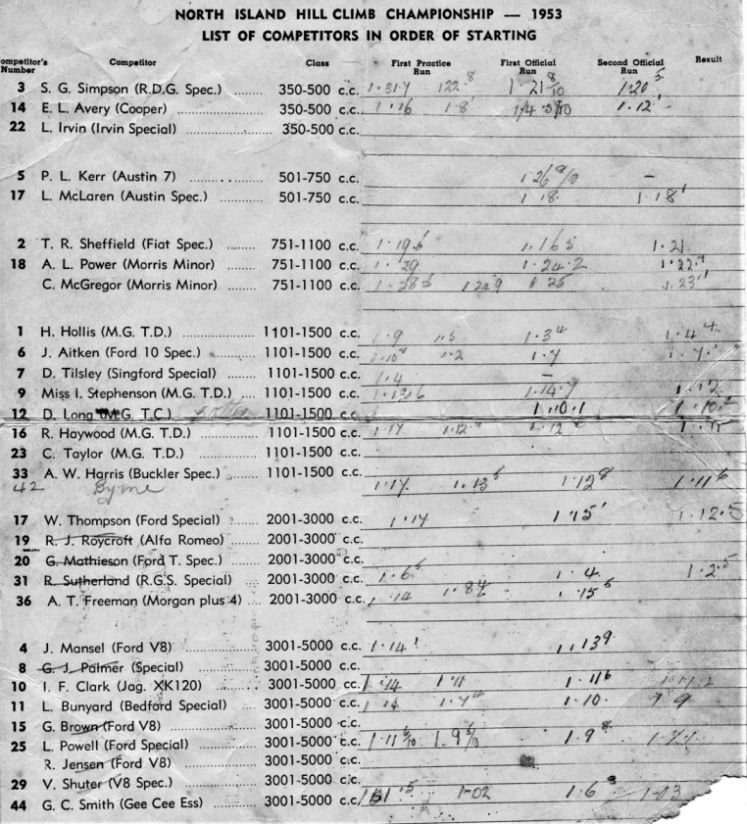 NORTH ISLAND HILL CLIMB CHAMPIONSHIP — 1953
LIST OF COMPETITORS IN ORDER OF STARTING
ompetitor's Number Competitor Class First Practice Run First Official Run Second Official Run Result
3 S. G. Simpson (R.D.G. Spec.) ........ 350-500 c.c. 1·31·7 122·8 1·21 8/10 1·20 5
14 E. L. Avery (Cooper) ........ 350-500 c.c. 1·16 1·8 1·12
22 L. Irvin (Irvin Special) ........ 350-500 c.c.
5 P. L. Kerr (Austin 7) ........ 501-750 c.c. –
17 L. McLaren (Austin Spec.) ........ 501-750 c.c. 1·18 1·18
2 T. R. Sheffield (Fiat Spec.) ........ 751-1100 c.c. 1·19 1·16 5 1·21
18 A. L. Power (Morris Minor) ........ 751-1100 c.c. 1·29 1·24·2 1·22
C. McGregor (Morris Minor) ........ 751-1100 c.c. 1·25 1·23
1 H. Hollis (M.G. T.D.) ........ 1101-1500 c.c. 1·9 1·5 1·3 4 1·4 4
6 J. Aitken (Ford 10 Spec.) ........ 1101-1500 c.c. 1·2 1·7
7 D. Tilsley (Singford Special) ........ 1101-1500 c.c. 1·4 –
9 Miss I. Stephenson (M.G. T.D.) .... 1101-1500 c.c. 1·14·7 1·12
12 D. Long (M.G. T.C.) 1101-1500 c.c. 1·10·1
16 R. Haywood (M.G. T.D.) ........ 1101-1500 c.c. 1·17 1·12
23 C. Taylor (M.G. T.D.) ........ 1101-1500 c.c.
33 A. W. Harris (Buckler Spec.) ........ 1101-1500 c.c.
42 Byrne 1·17 1·13 5 1·12 8 1·11 6
17 W. Thompson (Ford Special) ........ 2001-3000 c.c. 1·14 1·15 1·12·5
19 R. J. Roycroft (Alfa Romeo) ........ 2001-3000 c.c.
20 G. Mathieson (Ford T. Spec.) ........ 2001-3000 c.c.
31 R. Sutherland (R.G.S. Special) ........ 2001-3000 c.c. 1·6 1·4 1·2·5
36 A. T. Freeman (Morgan plus 4) .... 2001-3000 c.c. 1·14 1·15 6
4 J. Mansel (Ford V8) ........ 3001-5000 c.c. 1·14 1·13 9
8 G. J. Palmer (Special) ........ 3001-5000 c.c.
10 I. F. Clark (Jag. XK120) ........ 3001-5000 cc. 1·14 1·11 1·11 6
11 L. Bunyard (Bedford Special) ........ 3001-5000 c.c. 1·14 1·10
15 G. Brown (Ford V8) ........ 3001-5000 c.c.
25 L. Powell (Ford Special) ........ 3001-5000 c.c. 1·11 6/10 1·9 5/10 1·9 8
R. Jensen (Ford V8) ........ 3001-5000 c.c.
29 V. Shuter (V8 Spec.) ........ 3001-5000 c.c.
44 G. C. Smith (Gee Cee Ess) ........ 3001-5000 c.c. 1·02 1·6 1·13